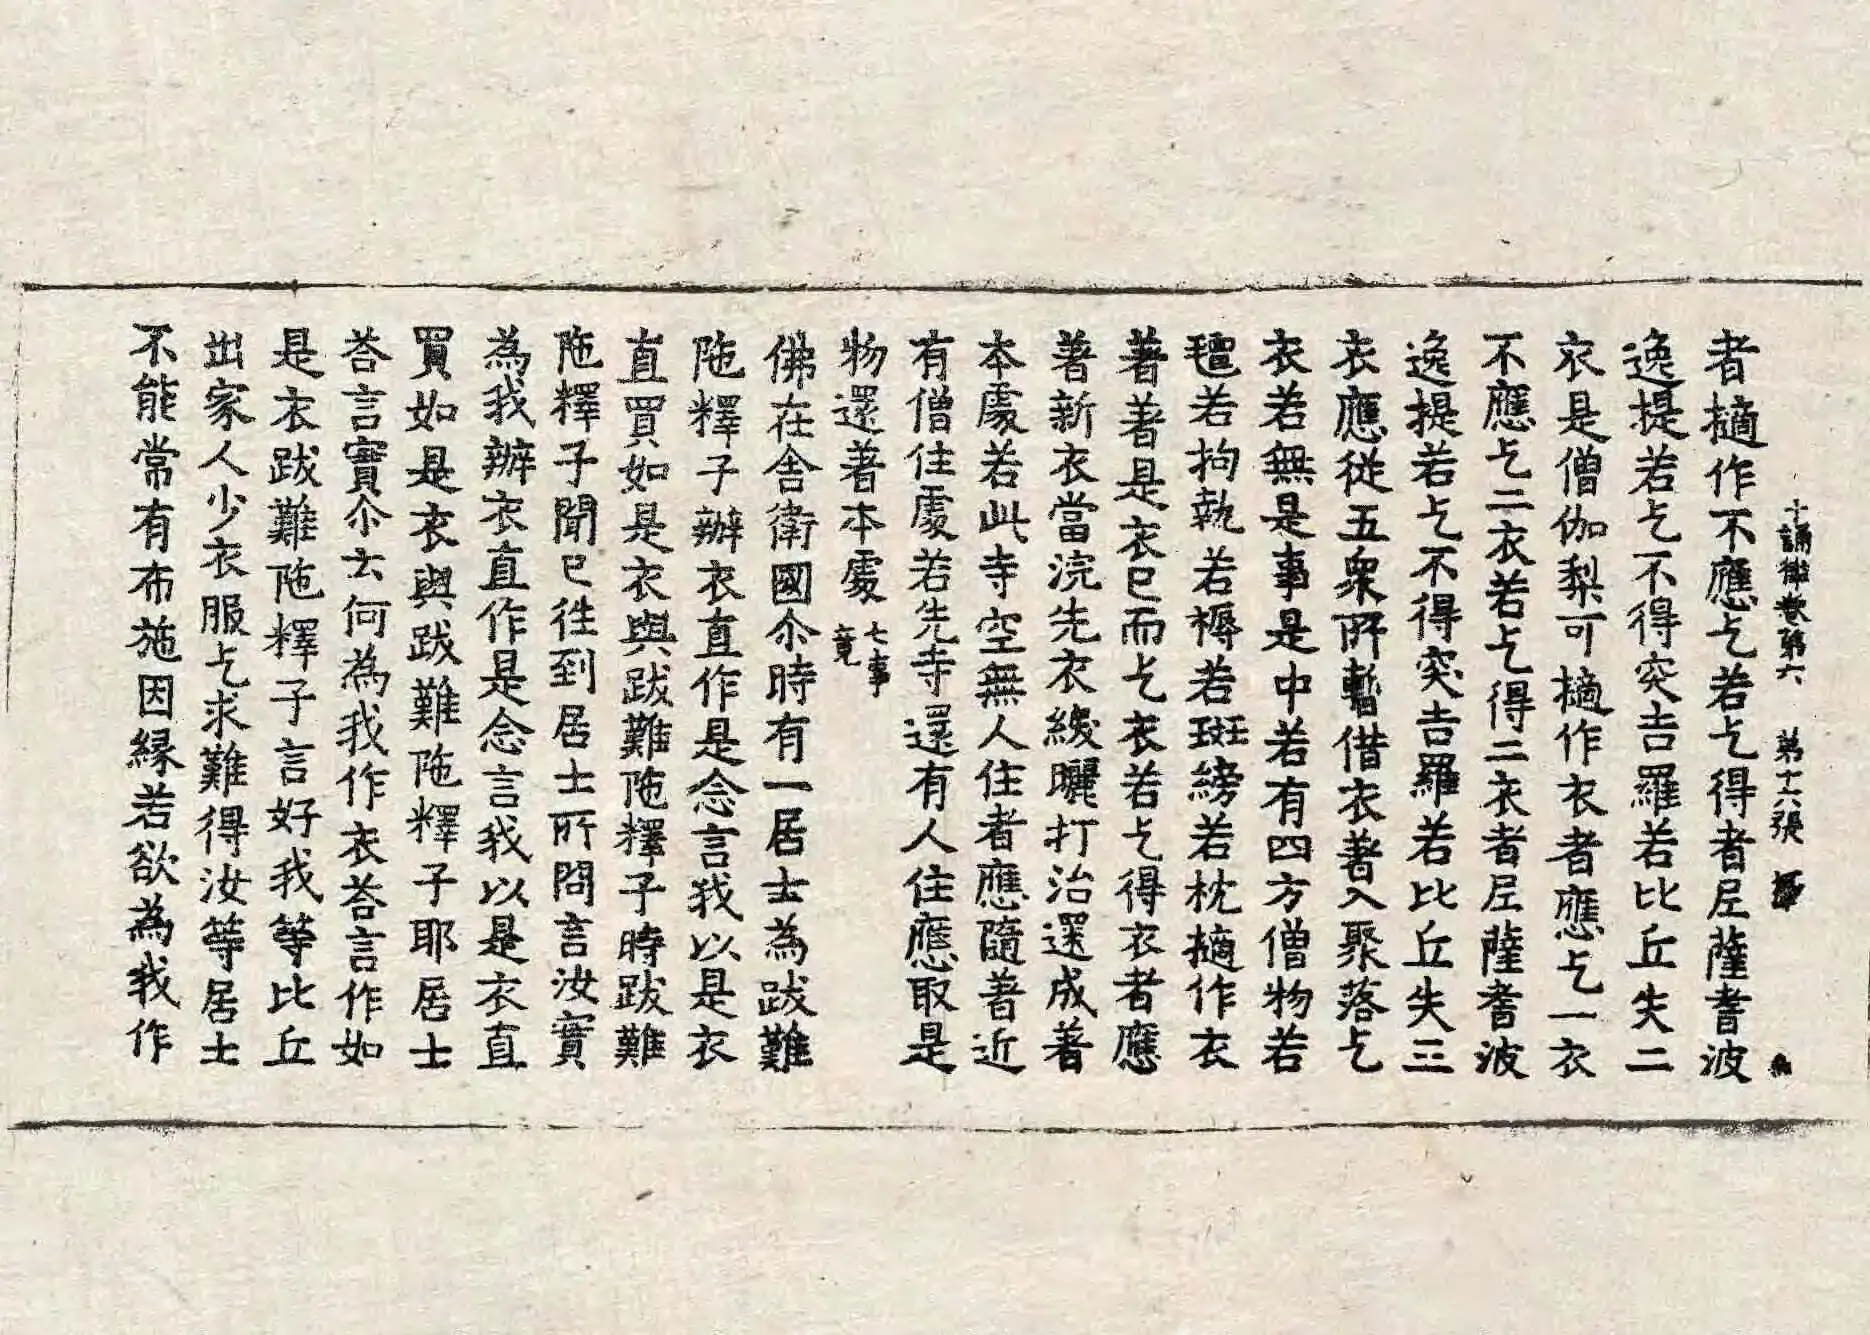 十誦律卷第六 第十六張
者擿作不應乞若乞得者尼薩耆波
逸提若乞不得突吉羅若比丘失二
衣是僧伽梨可擿作衣者應乞一衣
不應乞二衣若乞得二衣者尼薩耆波
逸提若乞不得突吉羅若比丘失三
衣應從五衆所暫借衣著入聚落乞
衣若無是事是中若有四方僧物若
氍若拘執若褥若班縍若枕擿作衣
著著是衣已而乞衣若乞得衣者應
著新衣當浣先衣綴曬打治還成著
本處若此寺空無人住者應隨著近
有僧住處若先寺還有人住應取是
物還著本處 七事竟
佛在舍衛國尒時有一居士為跋難
陁釋子辦衣直作是念言我以是衣
直買如是衣與跋難陁釋子時跋難
陁釋子聞已徃到居士所問言汝實
為我辦衣直作是念言我以是衣直
買如是衣與跋難陁釋子耶居士
荅言實尒云何為我作衣荅言作如
是衣跋難陁釋子言好我等比丘
出家人少衣服乞求難得汝等居士
不能常有布施因緣若欲為我作